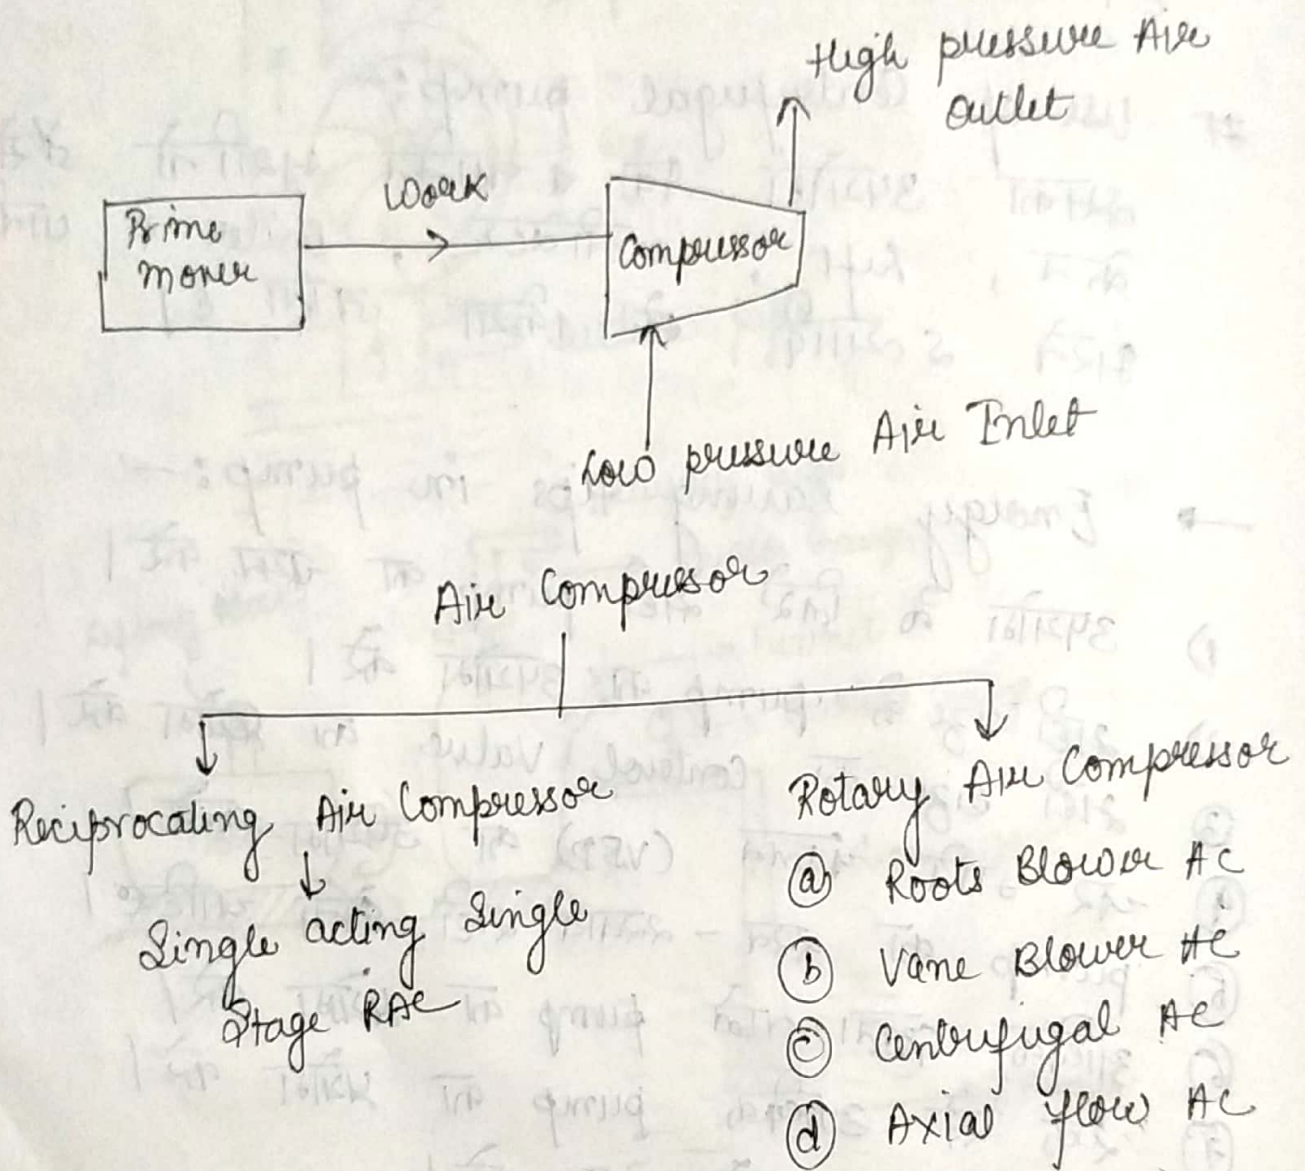 High pressure Air
outlet
Work
Prime
mover
Compressor
Low pressure Air Inlet
Air Compressor
Reciprocating Air Compressor
Single acting Single
Stage RAC
Rotary Air Compressor
(a) Roots Blower AC
(b) Vane Blower AC
(c) Centrifugal AC
(d) Axial flow AC